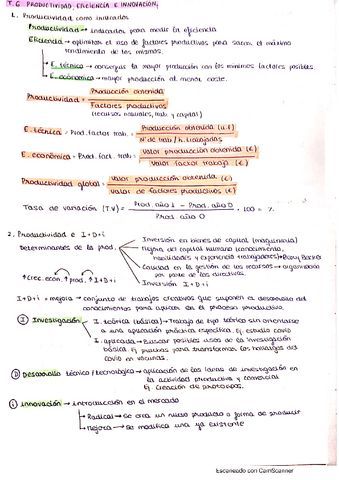 T.6 PRODUCTIVIDAD, EFICIENCIA E INNOVACIÓN
1. Productividad como indicador
Productividad → indicador para medir la eficiencia
Eficiencia → optimizar el uso de factores productivos para sacar el máximo
rendimiento de los mismos.
E. técnica → conseguir la mayor producción con los mínimos factores posibles.
E. económica → mayor producción al menor coste.
Productividad = Producción obtenida / Factores productivos
(recursos naturales, trab. y capital)
E. técnica = Prod. factor trab. = Producción obtenida (u.f) / Nº de trab / h. trabajadas
E. económica = Prod. fact. trab. = Valor producción obtenida (€) / Valor factor trabajo (€)
Productividad global = Valor producción obtenida (€) / Valor de factores productivos (€)
Tasa de variación (T.V) = Prod. año 1 - Prod. año 0 / Prod. año 0 · 100 = %
2. Productividad e I+D+i
Determinantes de la prod.
Inversión en bienes de capital (maquinaria)
Mejora del capital humano (conocimiento,
habilidades y experiencia trabajadores)
Calidad en la gestión de los recursos → organización
por parte de los directivos.
Inversión I+D+i
↑ Crec. econ. ↑ prod. ↑ I+D+i
I+D+i = mejora → conjunto de trabajos creativos que suponen el desarrollo del
conocimiento para aplicar en el proceso productivo.
I Investigación
I. teórica (básica) → Trabajo de tipo teórico sin orientarse
a una aplicación práctica específica. Ej. estudio covid
I. aplicada → Buscar posibles usos de la investigación
básica. Ej. pruebas para transformar los hallazgos del
covid en vacunas.
D Desarrollo técnico/tecnológico → aplicación de las tareas de investigación en
la actividad productiva y comercial
Ej. Creación de prototipos.
i Innovación → introducción en el mercado
Radical → se crea un nuevo producto o forma de producir
Mejora → se modifica una ya existente
Escaneado con CamScanner